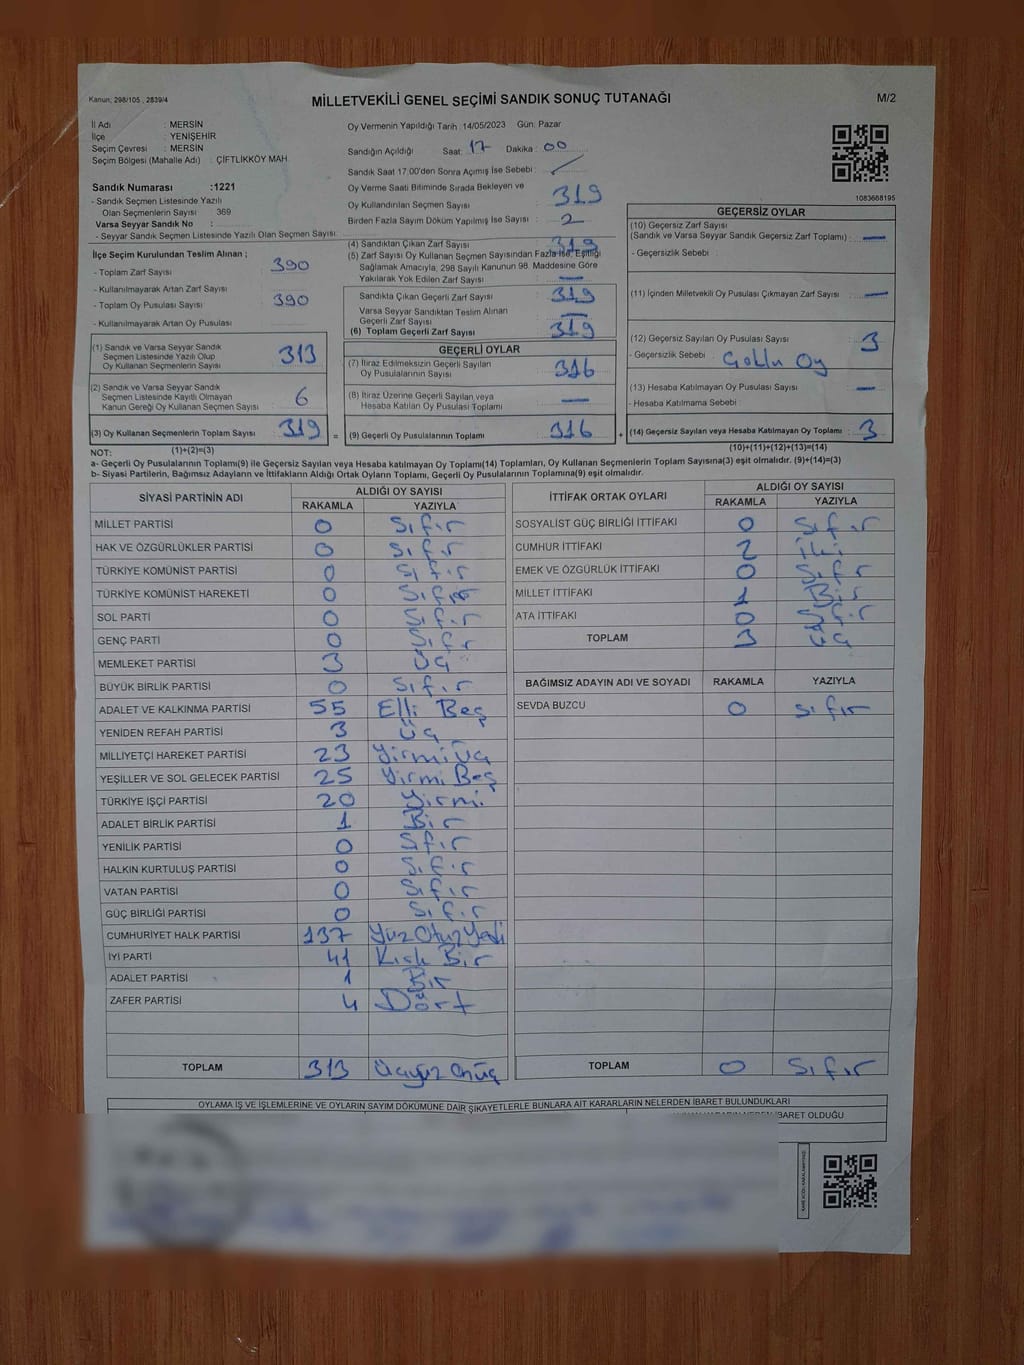 Kanun; 298/105 , 2839/4
MİLLETVEKİLİ GENEL SEÇİMİ SANDIK SONUÇ TUTANAĞI
M/2
İl Adı : MERSİN
İlçe : YENİŞEHİR
Seçim Çevresi : MERSİN
Seçim Bölgesi (Mahalle Adı) : ÇİFTLİKKÖY MAH.
Sandık Numarası :1221
- Sandık Seçmen Listesinde Yazılı
Olan Seçmenlerin Sayısı : 369
Varsa Seyyar Sandık No :
- Seyyar Sandık Seçmen Listesinde Yazılı Olan Seçmen Sayısı:
Oy Vermenin Yapıldığı Tarih :14/05/2023 Gün: Pazar
Sandığın Açıldığı Saat: 17 Dakika: 00
Sandık Saat 17.00'den Sonra Açımış İse Sebebi :
Oy Verme Saati Bitiminde Sırada Bekleyen ve
Oy Kullandırılan Seçmen Sayısı : 319
Birden Fazla Sayım Döküm Yapılmış İse Sayısı : 2
1083668195
İlçe Seçim Kurulundan Teslim Alınan ;
- Toplam Zarf Sayısı : 390
- Kullanılmayarak Artan Zarf Sayısı :
- Toplam Oy Pusulası Sayısı : 390
- Kullanılmayarak Artan Oy Pusulası :
(1) Sandık ve Varsa Seyyar Sandık
Seçmen Listesinde Yazılı Olup
Oy Kullanan Seçmenlerin Sayısı : 313
(2) Sandık ve Varsa Seyyar Sandık
Seçmen Listesinde Kayıtlı Olmayan
Kanun Gereği Oy Kullanan Seçmen Sayısı : 6
(3) Oy Kullanan Seçmenlerin Toplam Sayısı : 319
(1)+(2)=(3)
(4) Sandıktan Çıkan Zarf Sayısı : 319
(5) Zarf Sayısı Oy Kullanan Seçmen Sayısından Fazla İse, Eşitliği
Sağlamak Amacıyla, 298 Sayılı Kanunun 98. Maddesine Göre
Yakılarak Yok Edilen Zarf Sayısı : —
Sandıkta Çıkan Geçerli Zarf Sayısı : 319
Varsa Seyyar Sandıktan Teslim Alınan
Geçerli Zarf Sayısı : —
(6) Toplam Geçerli Zarf Sayısı : 319
GEÇERLİ OYLAR
(7) İtiraz Edilmeksizin Geçerli Sayılan
Oy Pusulalarının Sayısı : 316
(8) İtiraz Üzerine Geçerli Sayılan veya
Hesaba Katılan Oy Pusulası Toplamı : —
= (9) Geçerli Oy Pusulalarının Toplamı : 316 +
GEÇERSİZ OYLAR
(10) Geçersiz Zarf Sayısı
(Sandık ve Varsa Seyyar Sandık Geçersiz Zarf Toplamı) : —
- Geçersizlik Sebebi :
(11) İçinden Milletvekili Oy Pusulası Çıkmayan Zarf Sayısı : —
(12) Geçersiz Sayılan Oy Pusulası Sayısı : 3
- Geçersizlik Sebebi : Çoklu Oy
(13) Hesaba Katılmayan Oy Pusulası Sayısı : —
- Hesaba Katılmama Sebebi :
(14) Geçersiz Sayılan veya Hesaba Katılmayan Oy Toplamı : 3
(10)+(11)+(12)+(13)=(14)
NOT:
a- Geçerli Oy Pusulalarının Toplamı(9) ile Geçersiz Sayılan veya Hesaba Katılmayan Oy Toplamı(14) Toplamları, Oy Kullanan Seçmenlerin Toplam Sayısına(3) eşit olmalıdır. (9)+(14)=(3)
b- Siyasi Partilerin, Bağımsız Adayların ve İttifakların Aldığı Ortak Oyların Toplamı, Geçerli Oy Pusulalarının Toplamına(9) eşit olmalıdır.
SİYASİ PARTİNİN ADI
ALDIĞI OY SAYISI
RAKAMLA YAZIYLA
MİLLET PARTİSİ 0 Sıfır
HAK VE ÖZGÜRLÜKLER PARTİSİ 0 Sıfır
TÜRKİYE KOMÜNİST PARTİSİ 0 Sıfır
TÜRKİYE KOMÜNİST HAREKETİ 0 Sıfır
SOL PARTİ 0 Sıfır
GENÇ PARTİ 0 Sıfır
MEMLEKET PARTİSİ 3 Üç
BÜYÜK BİRLİK PARTİSİ 0 Sıfır
ADALET VE KALKINMA PARTİSİ 55 Elli Beş
YENİDEN REFAH PARTİSİ 3 Üç
MİLLİYETÇİ HAREKET PARTİSİ 23 Yirmi Üç
YEŞİLLER VE SOL GELECEK PARTİSİ 25 Yirmi Beş
TÜRKİYE İŞÇİ PARTİSİ 20 Yirmi
ADALET BİRLİK PARTİSİ 1 Bir
YENİLİK PARTİSİ 0 Sıfır
HALKIN KURTULUŞ PARTİSİ 0 Sıfır
VATAN PARTİSİ 0 Sıfır
GÜÇ BİRLİĞİ PARTİSİ 0 Sıfır
CUMHURİYET HALK PARTİSİ 137 Yüz Otuz Yedi
İYİ PARTİ 41 Kırk Bir
ADALET PARTİSİ 1 Bir
ZAFER PARTİSİ 4 Dört
TOPLAM 313 Üçyüz Onüç
İTTİFAK ORTAK OYLARI
ALDIĞI OY SAYISI
RAKAMLA YAZIYLA
SOSYALİST GÜÇ BİRLİĞİ İTTİFAKI 0 Sıfır
CUMHUR İTTİFAKI 2 İki
EMEK VE ÖZGÜRLÜK İTTİFAKI 0 Sıfır
MİLLET İTTİFAKI 1 Bir
ATA İTTİFAKI 0 Sıfır
TOPLAM 3 Üç
BAĞIMSIZ ADAYIN ADI VE SOYADI RAKAMLA YAZIYLA
SEVDA BUZCU 0 Sıfır
TOPLAM 0 Sıfır
OYLAMA İŞ VE İŞLEMLERİNE VE OYLARIN SAYIM DÖKÜMÜNE DAİR ŞİKAYETLERLE BUNLARA AİT KARARLARIN NELERDEN İBARET BULUNDUKLARI
İBARET OLDUĞU